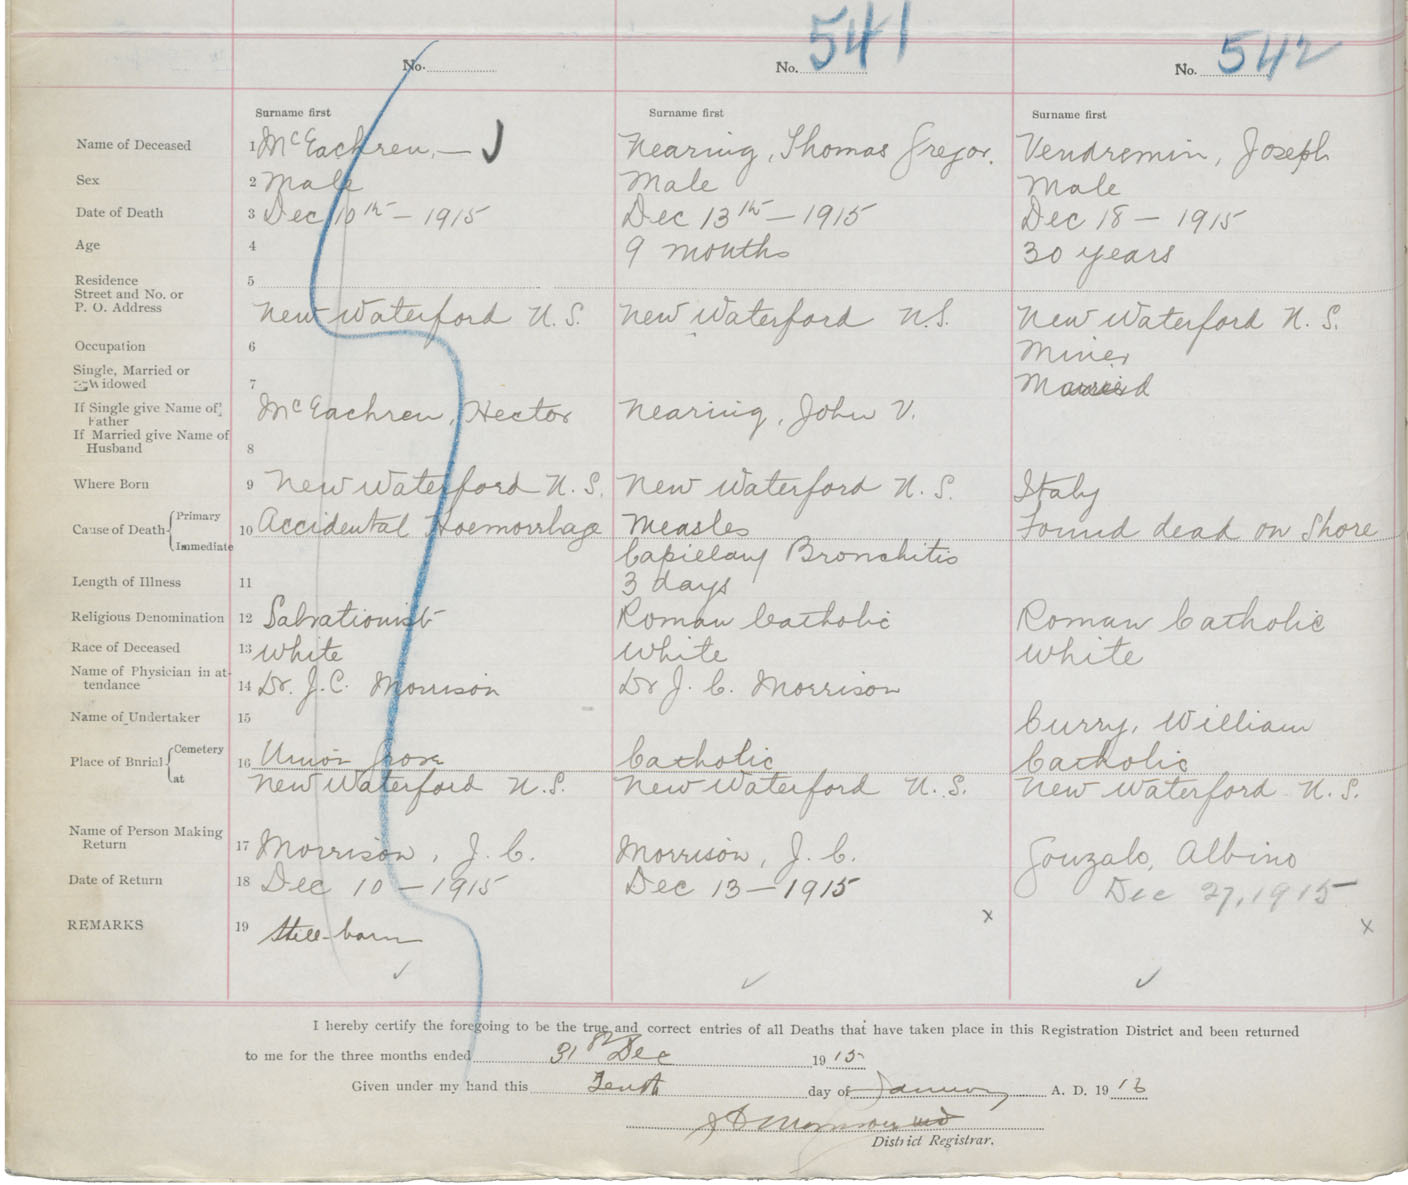 No. No. 541 No. 542
Surname first Surname first Surname first
Name of Deceased 1 McEachren, — J Nearing, Thomas Gregor. Vendremin, Joseph
Sex 2 Male Male Male
Date of Death 3 Dec 10th — 1915 Dec 13th — 1915 Dec 18 — 1915
Age 4 9 months 30 years
Residence 5
Street and No. or
P. O. Address New Waterford N.S. New Waterford N.S. New Waterford N.S.
Occupation 6 Miner
Single, Married or
Widowed 7 Married
If Single give Name of Father McEachren, Hector Nearing, John V.
If Married give Name of
Husband 8
Where Born 9 New Waterford N.S. New Waterford N.S. Italy
Cause of Death Primary 10 Accidental Hoemorrhage Measles Found dead on Shore
Immediate Capillary Bronchitis
Length of Illness 11 3 days
Religious Denomination 12 Salvationist Roman Catholic Roman Catholic
Race of Deceased 13 White White White
Name of Physician in at-
tendance 14 Dr. J.C. Morrison Dr J. C. Morrison
Name of Undertaker 15 Curry, William
Place of Burial Cemetery 16 Union Grove Catholic Catholic
at New Waterford N.S. New Waterford N.S. New Waterford N.S.
Name of Person Making
Return 17 Morrison, J. C. Morrison, J. C. Gonzalo, Albino
Date of Return 18 Dec 10 — 1915 Dec 13 — 1915 Dec 27, 1915
REMARKS 19 Still-born x x
I hereby certify the foregoing to be the true and correct entries of all Deaths that have taken place in this Registration District and been returned
to me for the three months ended 31st Dec 1915
Given under my hand this Tenth day of January A. D. 1916
District Registrar.